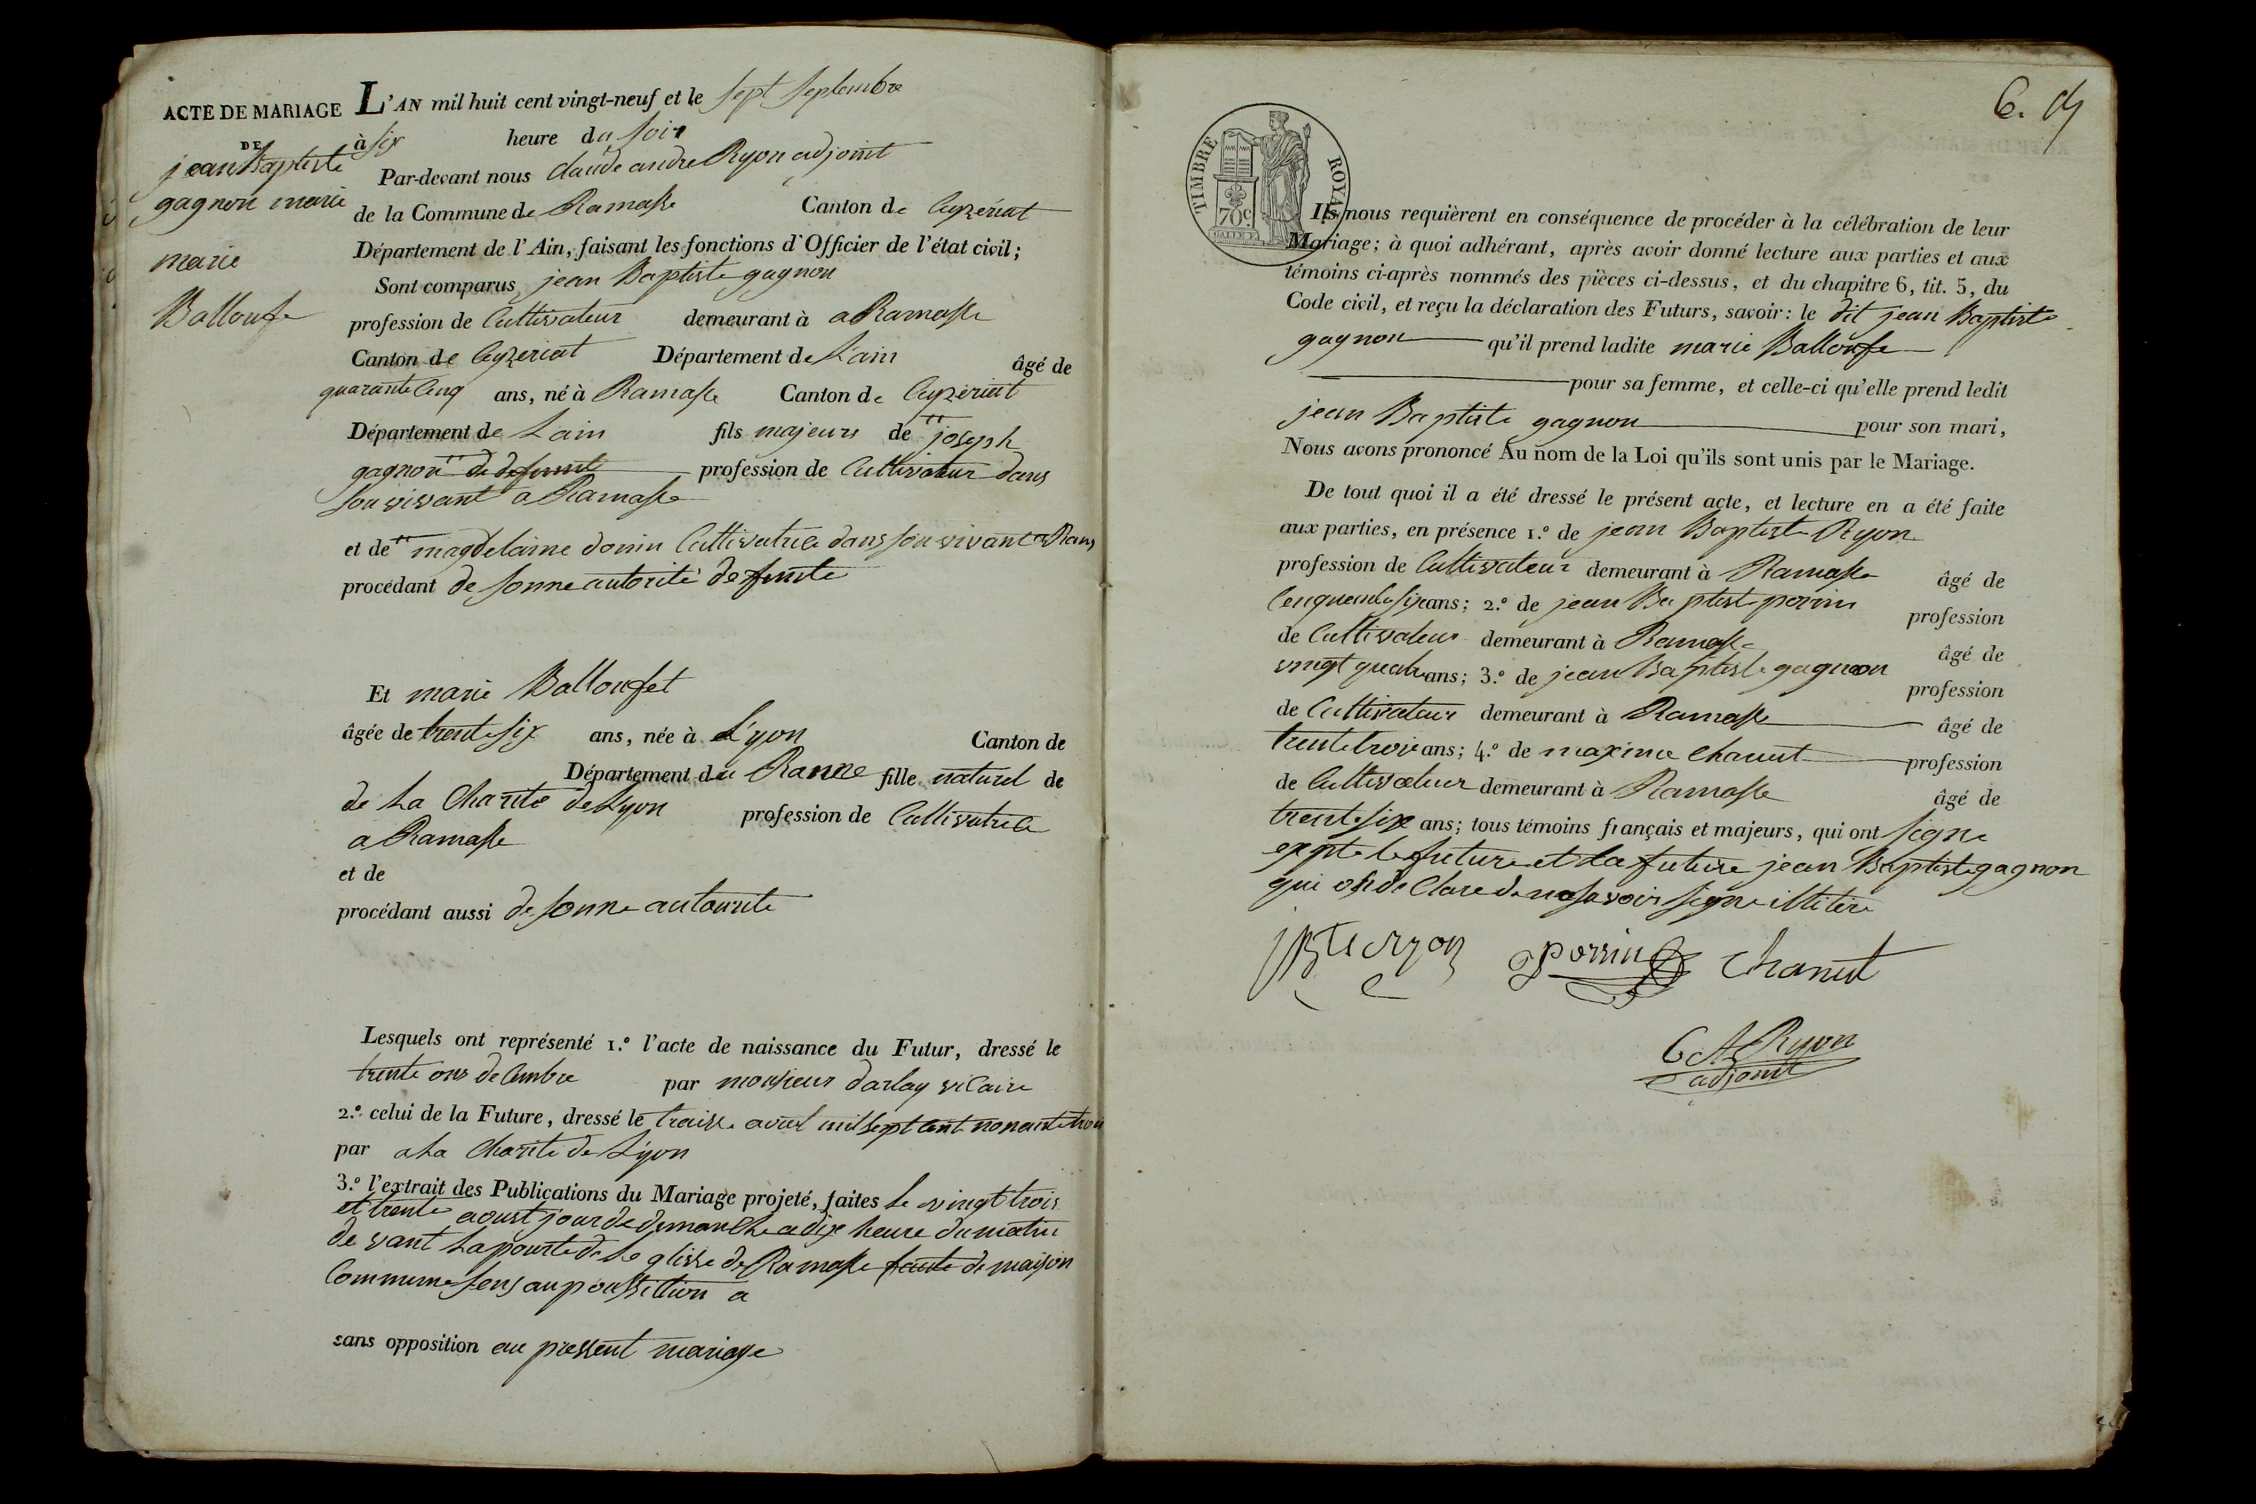 ACTE DE MARIAGE
DE
jean Baptiste
gagnon marie
marie
Balloufe
L'AN mil huit cent vingt-neuf et le sept septembre
à six heure du soir
Par-devant nous claude andre Ryon adjoint
de la Commune de Ramasse Canton de Ceyzeriat
Département de l'Ain, faisant les fonctions d'Officier de l'état civil;
Sont comparus jean Baptiste gagnon
profession de Cultivateur demeurant à a Ramasse
Canton de Ceyzeriat Département de L'ain âgé de
quarante Cinq ans, né à Ramasse Canton de Ceyzériat
Département de L'ain fils majeurs de joseph
gagnon de defunt profession de Cultivateur dans
son vivant a Ramasse
et de magdelaine donin Cultivatrice dans son vivant a Ram
procédant de sonne autorité defunte
Et marie Ballouffet
âgée de trente six ans, née à L'yon Canton de
Département du Ranne fille naturel de
de La Charité de Lyon profession de Cultivatrice
a Ramasse
et de
procédant aussi de sonne autourite
Lesquels ont représenté 1.º l'acte de naissance du Futur, dressé le
trente ons decembre par monsieur darlay vicaire
2.º celui de la Future, dressé le traisse avril mil sept cent nonante trois
par a La Charité de Lyon
3.º l'extrait des Publications du Mariage projeté, faites le vingt trois
et trente aoust jour de dimanche a dix heure du matin
devant La pourte de Le glisse de Ramasse faute de maison
Commune sens aupoussittion a
sans opposition au pressent mariage
6. dy
TIMBRE ROYAL
70c
Ils nous requièrent en conséquence de procéder à la célébration de leur
Mariage; à quoi adhérant, après avoir donné lecture aux parties et aux
témoins ci-après nommés des pièces ci-dessus, et du chapitre 6, tit. 5, du
Code civil, et reçu la déclaration des Futurs, savoir: le dit jean Baptiste
gagnon qu'il prend ladite marie Balloufe
pour sa femme, et celle-ci qu'elle prend ledit
jean Baptiste gagnon pour son mari,
Nous avons prononcé Au nom de la Loi qu'ils sont unis par le Mariage.
De tout quoi il a été dressé le présent acte, et lecture en a été faite
aux parties, en présence 1.º de jean Baptiste Ryon
profession de Cultivateur demeurant à Ramasse âgé de
Cenquente six ans; 2.º de jean Baptiste perrin profession
de Cultivateur demeurant à Ramasse âgé de
vingt quatre ans; 3.º de jean Baptiste gagnon profession
de Cultivateur demeurant à Ramasse âgé de
trente trois ans; 4.º de maxime Chanut profession
de Cultivateur demeurant à Ramasse âgé de
trente six ans; tous témoins français et majeurs, qui ont signe
exepte le future et La future jean Baptiste gagnon
qui on de Clare de ne savoir signe illitere
JBte ryon perrin Chanut
C A Ryon
adjoint